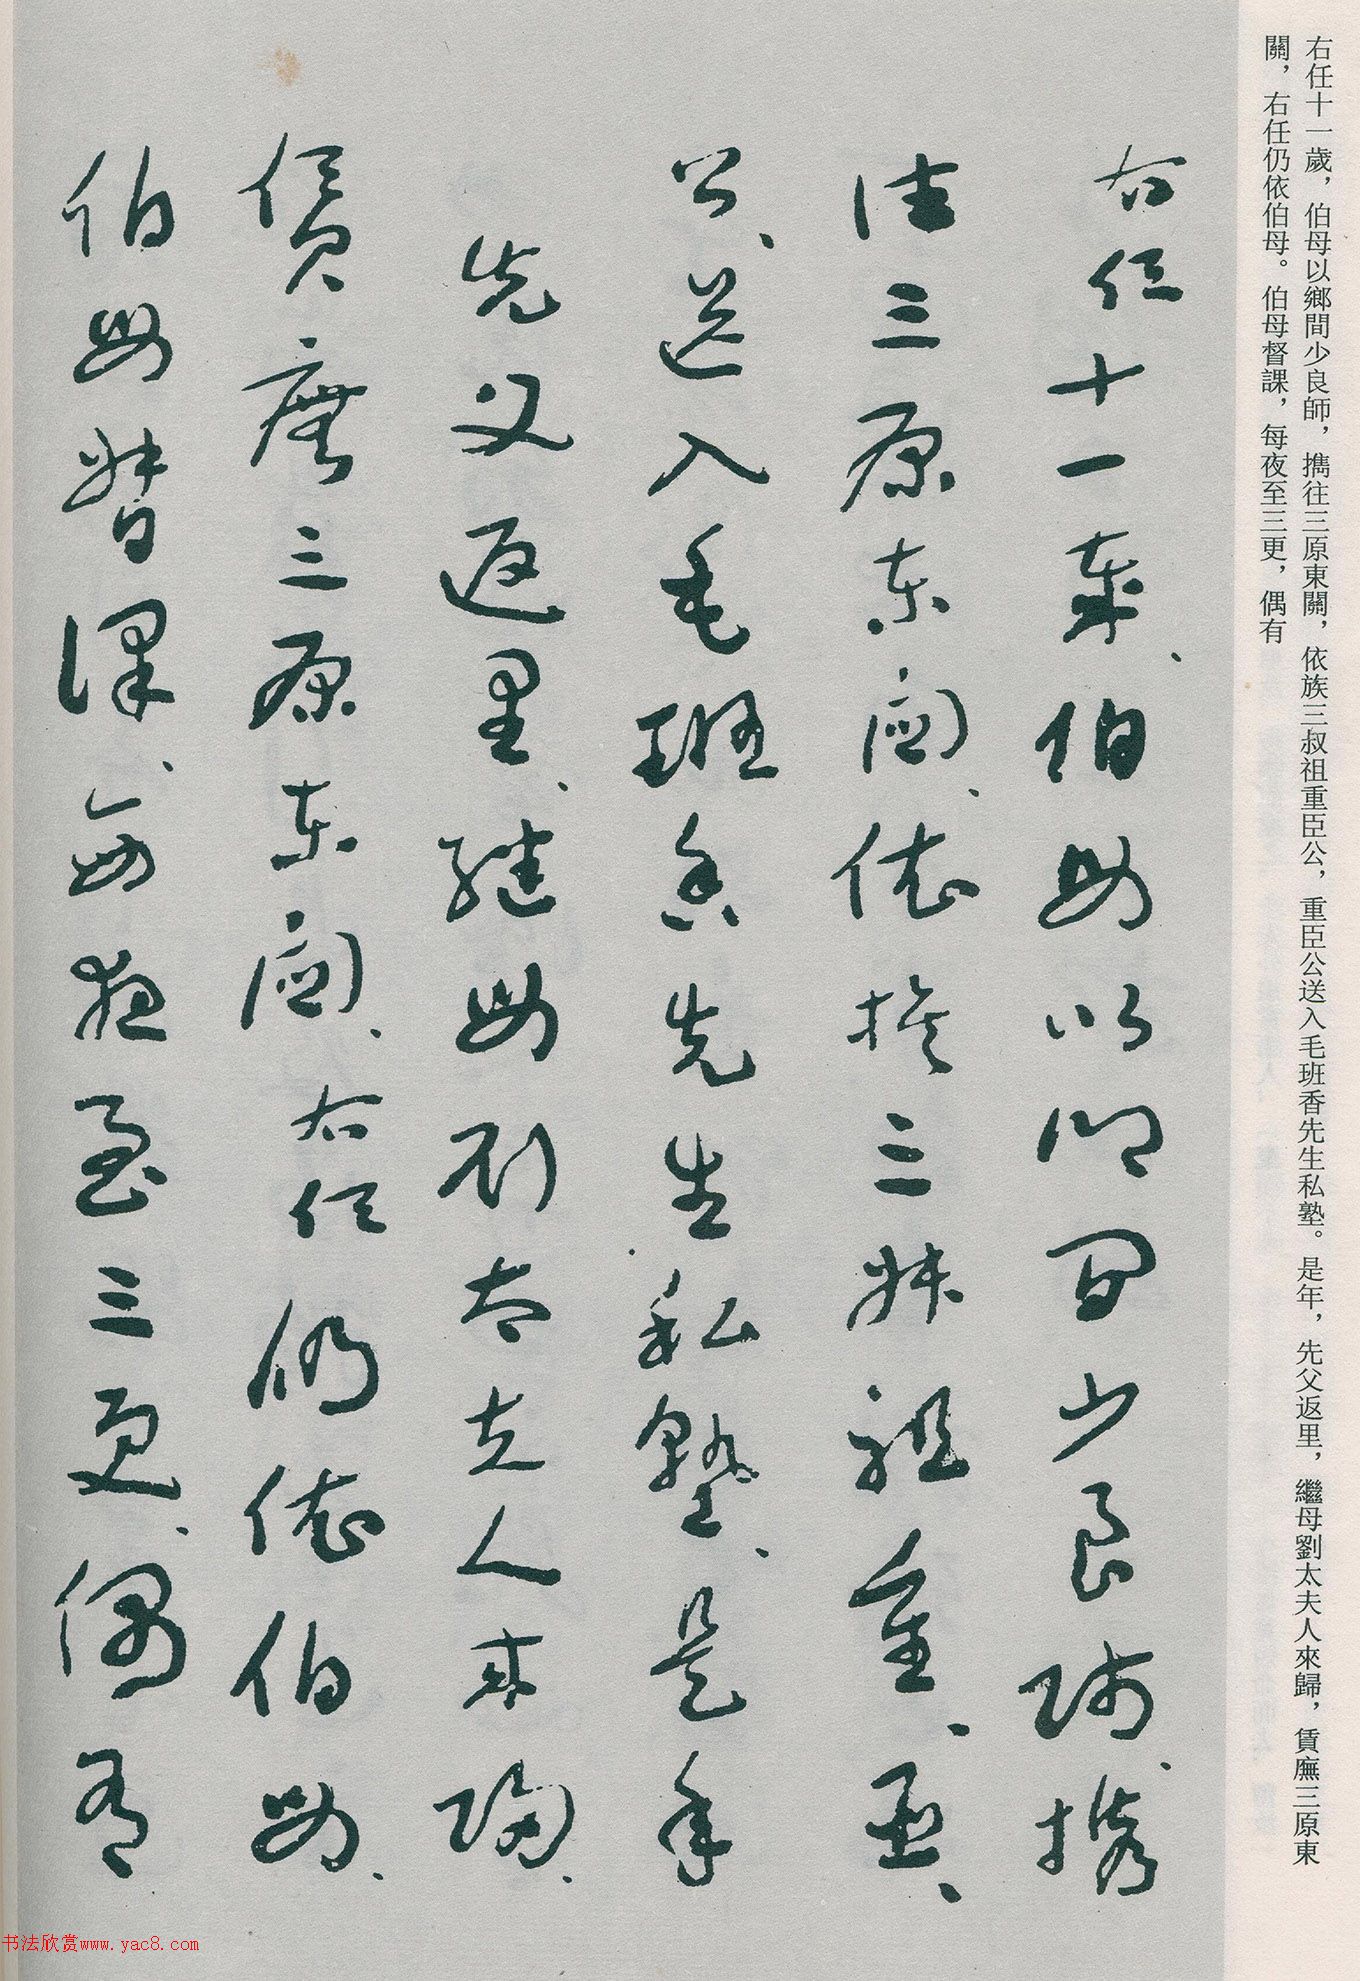 右任十一歲，伯母以鄉間少良師，擕往三原東關，依族三叔祖重臣公，重臣公送入毛班香先生私塾。是年，先父返里，繼母劉太夫人來歸，賃廡三原東
關，右任仍依伯母。伯母督課，每夜至三更，偶有
右任十一歲、伯母以鄉間少良師、擕
往三原東關、依族三叔祖重、臣、
公、送入毛班香先生私塾、是年
先父返里、繼母劉太夫人來歸、
賃廡三原東關、右任仍依伯母、
伯母督課、每夜至三更、偶有
书法欣赏www.yac8.com